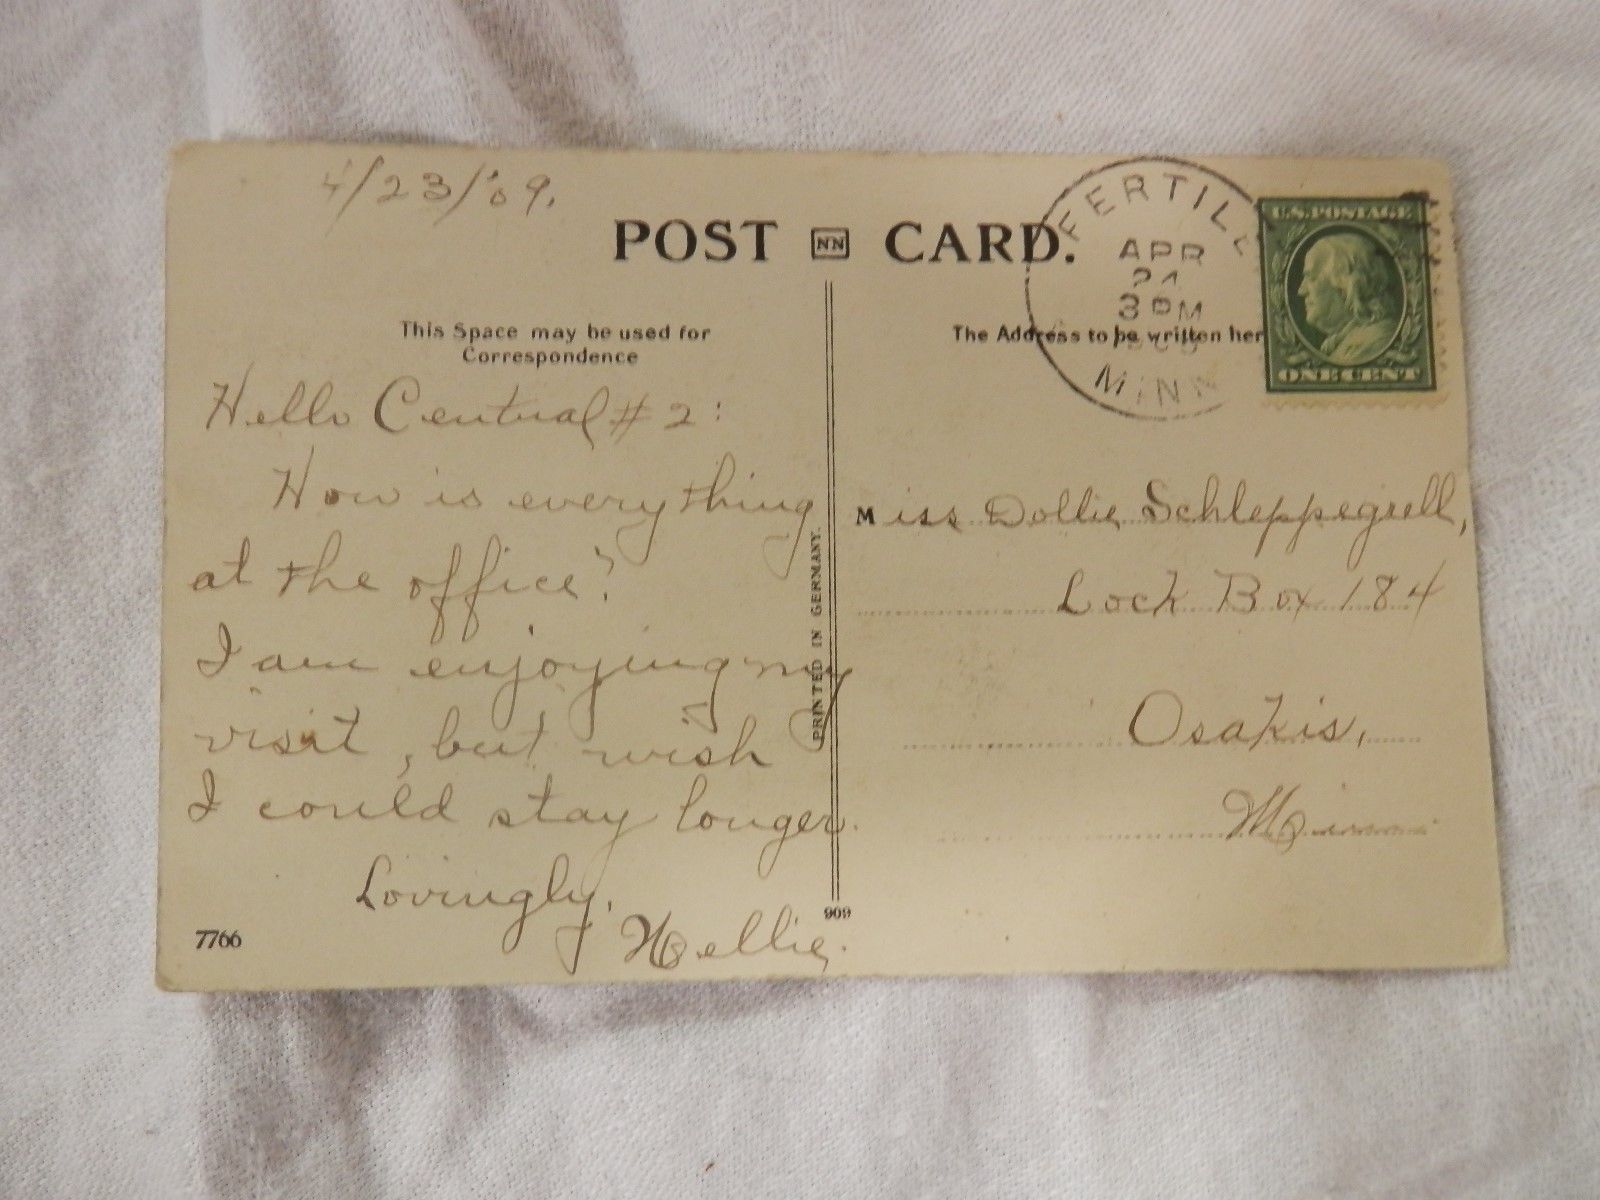 4/23/'09.
POST NN CARD.
This Space may be used for
Correspondence
The Address to be written her
FERTILE
APR
24
3 PM
1909
MINN
U.S. POSTAGE
ONE CENT
Hello Central #2:
How is everything
at the office?
I am enjoying my
visit, but wish
I could stay longer.
Lovingly,
Nellie.
7766
PRINTED IN GERMANY.
909
Miss Dollie Schleppegrell,
Lock Box 184
Osakis,
Minn